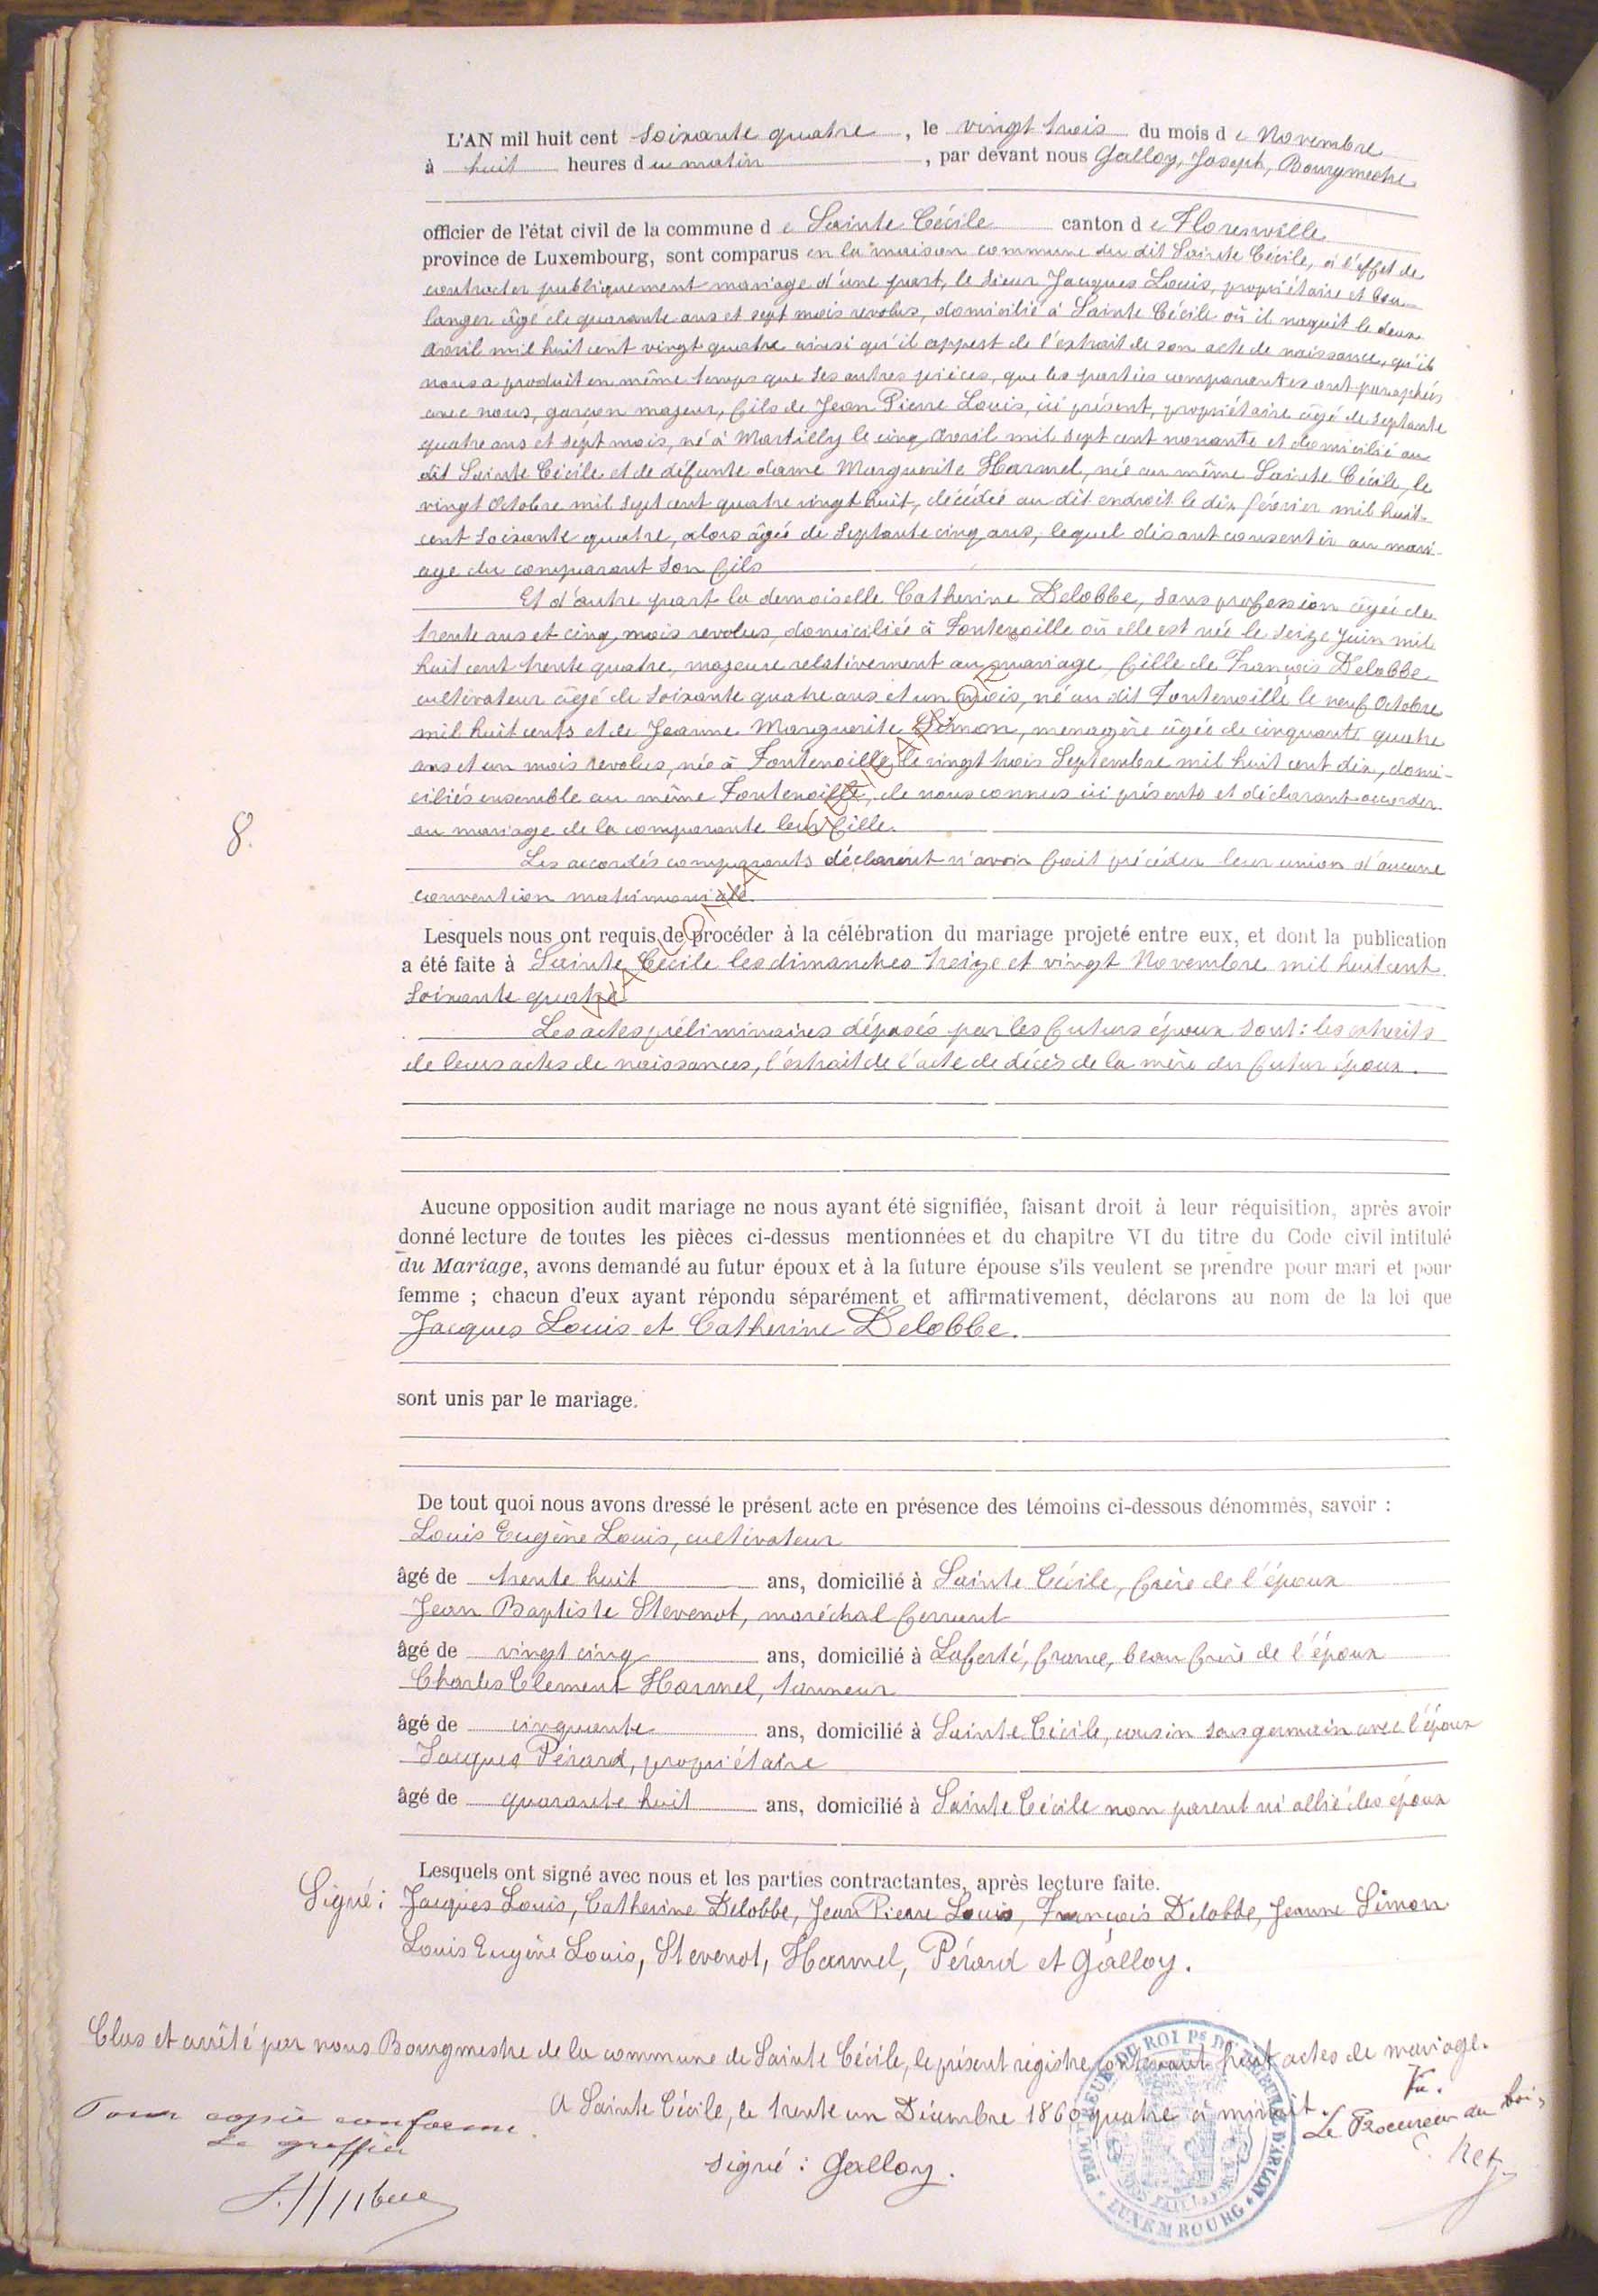 L'AN mil huit cent soixante quatre, le vingt trois du mois de Novembre
à huit heures du matin, par devant nous Galloy, Joseph, Bourgmestre
officier de l'état civil de la commune de Sainte Cécile canton de Florenville
province de Luxembourg, sont comparus en la maison commune du dit Sainte Cécile, à l'effet de
contracter publiquement mariage d'une part, le sieur Jacques Louis, propriétaire et bou-
langer âgé de quarante ans et sept mois revolus, domicilié à Sainte Cécile où il naquit le deux
Avril mil huit cent vingt quatre ainsi qu'il appert de l'extrait de son acte de naissance, qu'il
nous a produit en même temps que ses autres pièces, que les parties comparantes ont paraphés
avec nous, garçon majeur, fils de Jean Pierre Louis, ici présent, propriétaire âgé de septante
quatre ans et sept mois, né à Martilly le cinq Avril mil sept cent nonante et domicilié au
dit Sainte Cécile et de défunte dame Marguerite Harmel, née au même Sainte Cécile, le
vingt Octobre mil sept cent quatre vingt huit, décédée au dit endroit le dix février mil huit-
cent soixante quatre, alors âgée de septante cinq ans, lequel disant consentir au mari-
age du comparant son fils
Et d'autre part la demoiselle Catherine Delobbe, sans profession âgée de
trente ans et cinq mois revolus, domiciliée à Fontenoille où elle est née le seize Juin mil
huit cent trente quatre, majeure relativement au mariage, fille de François Delobbe
cultivateur âgé de soixante quatre ans et un mois, né au dit Fontenoille le neuf Octobre
mil huit cents et de Jeanne Marguerite Simon, menagère âgée de cinquante quatre
ans et un mois revolus, née à Fontenoille, le vingt trois Septembre mil huit cent dix, domi-
ciliés ensemble au même Fontenoille, de nous connus ici présents et déclarant accorder
au mariage de la comparante leur fille.
8.
Les accordés comparants déclarent n'avoir fait précéder leur union d'aucune
convention matrimoniale.
Lesquels nous ont requis de procéder à la célébration du mariage projeté entre eux, et dont la publication
a été faite à Sainte Cécile les dimanches treize et vingt Novembre mil huit cent
soixante quatre
Les actes préliminaires déposés par les futurs époux sont : les extraits
de leurs actes de naissances, l'extrait de l'acte de décès de la mère du futur époux.
Aucune opposition audit mariage ne nous ayant été signifiée, faisant droit à leur réquisition, après avoir
donné lecture de toutes les pièces ci-dessus mentionnées et du chapitre VI du titre du Code civil intitulé
du Mariage, avons demandé au futur époux et à la future épouse s'ils veulent se prendre pour mari et pour
femme ; chacun d'eux ayant répondu séparément et affirmativement, déclarons au nom de la loi que
Jacques Louis et Catherine Delobbe.
sont unis par le mariage.
De tout quoi nous avons dressé le présent acte en présence des témoins ci-dessous dénommés, savoir :
Louis Eugène Louis, cultivateur
âgé de trente huit ans, domicilié à Sainte Cécile, frère de l'époux
Jean Baptiste Stevenot, maréchal ferrant
âgé de vingt cinq ans, domicilié à Laferté, france, beau frère de l'époux
Charles Clement Harmel, tanneur
âgé de cinquante ans, domicilié à Sainte Cécile, cousin sous germain avec l'époux
Jacques Pérard, propriétaire
âgé de quarante huit ans, domicilié à Sainte Cécile non parent ni allié des époux
Lesquels ont signé avec nous et les parties contractantes, après lecture faite.
Signé : Jacques Louis, Catherine Delobbe, Jean Pierre Louis, François Delobbe, Jeanne Simon
Louis Eugène Louis, Stevenot, Harmel, Pérard et Galloy.
Clos et arrêté par nous Bourgmestre de la commune de Sainte Cécile, le présent registre contenant huit actes de mariage.
A Sainte Cécile, le trente un Décembre 1860 quatre à minuit.
signé : Galloy.
Pour copie conforme.
Le greffier
Vu.
Le Procureur du Roi,
PROCUREUR DU ROI PS DE 1RE INSTANCE D'ARLON
LUXEMBOURG